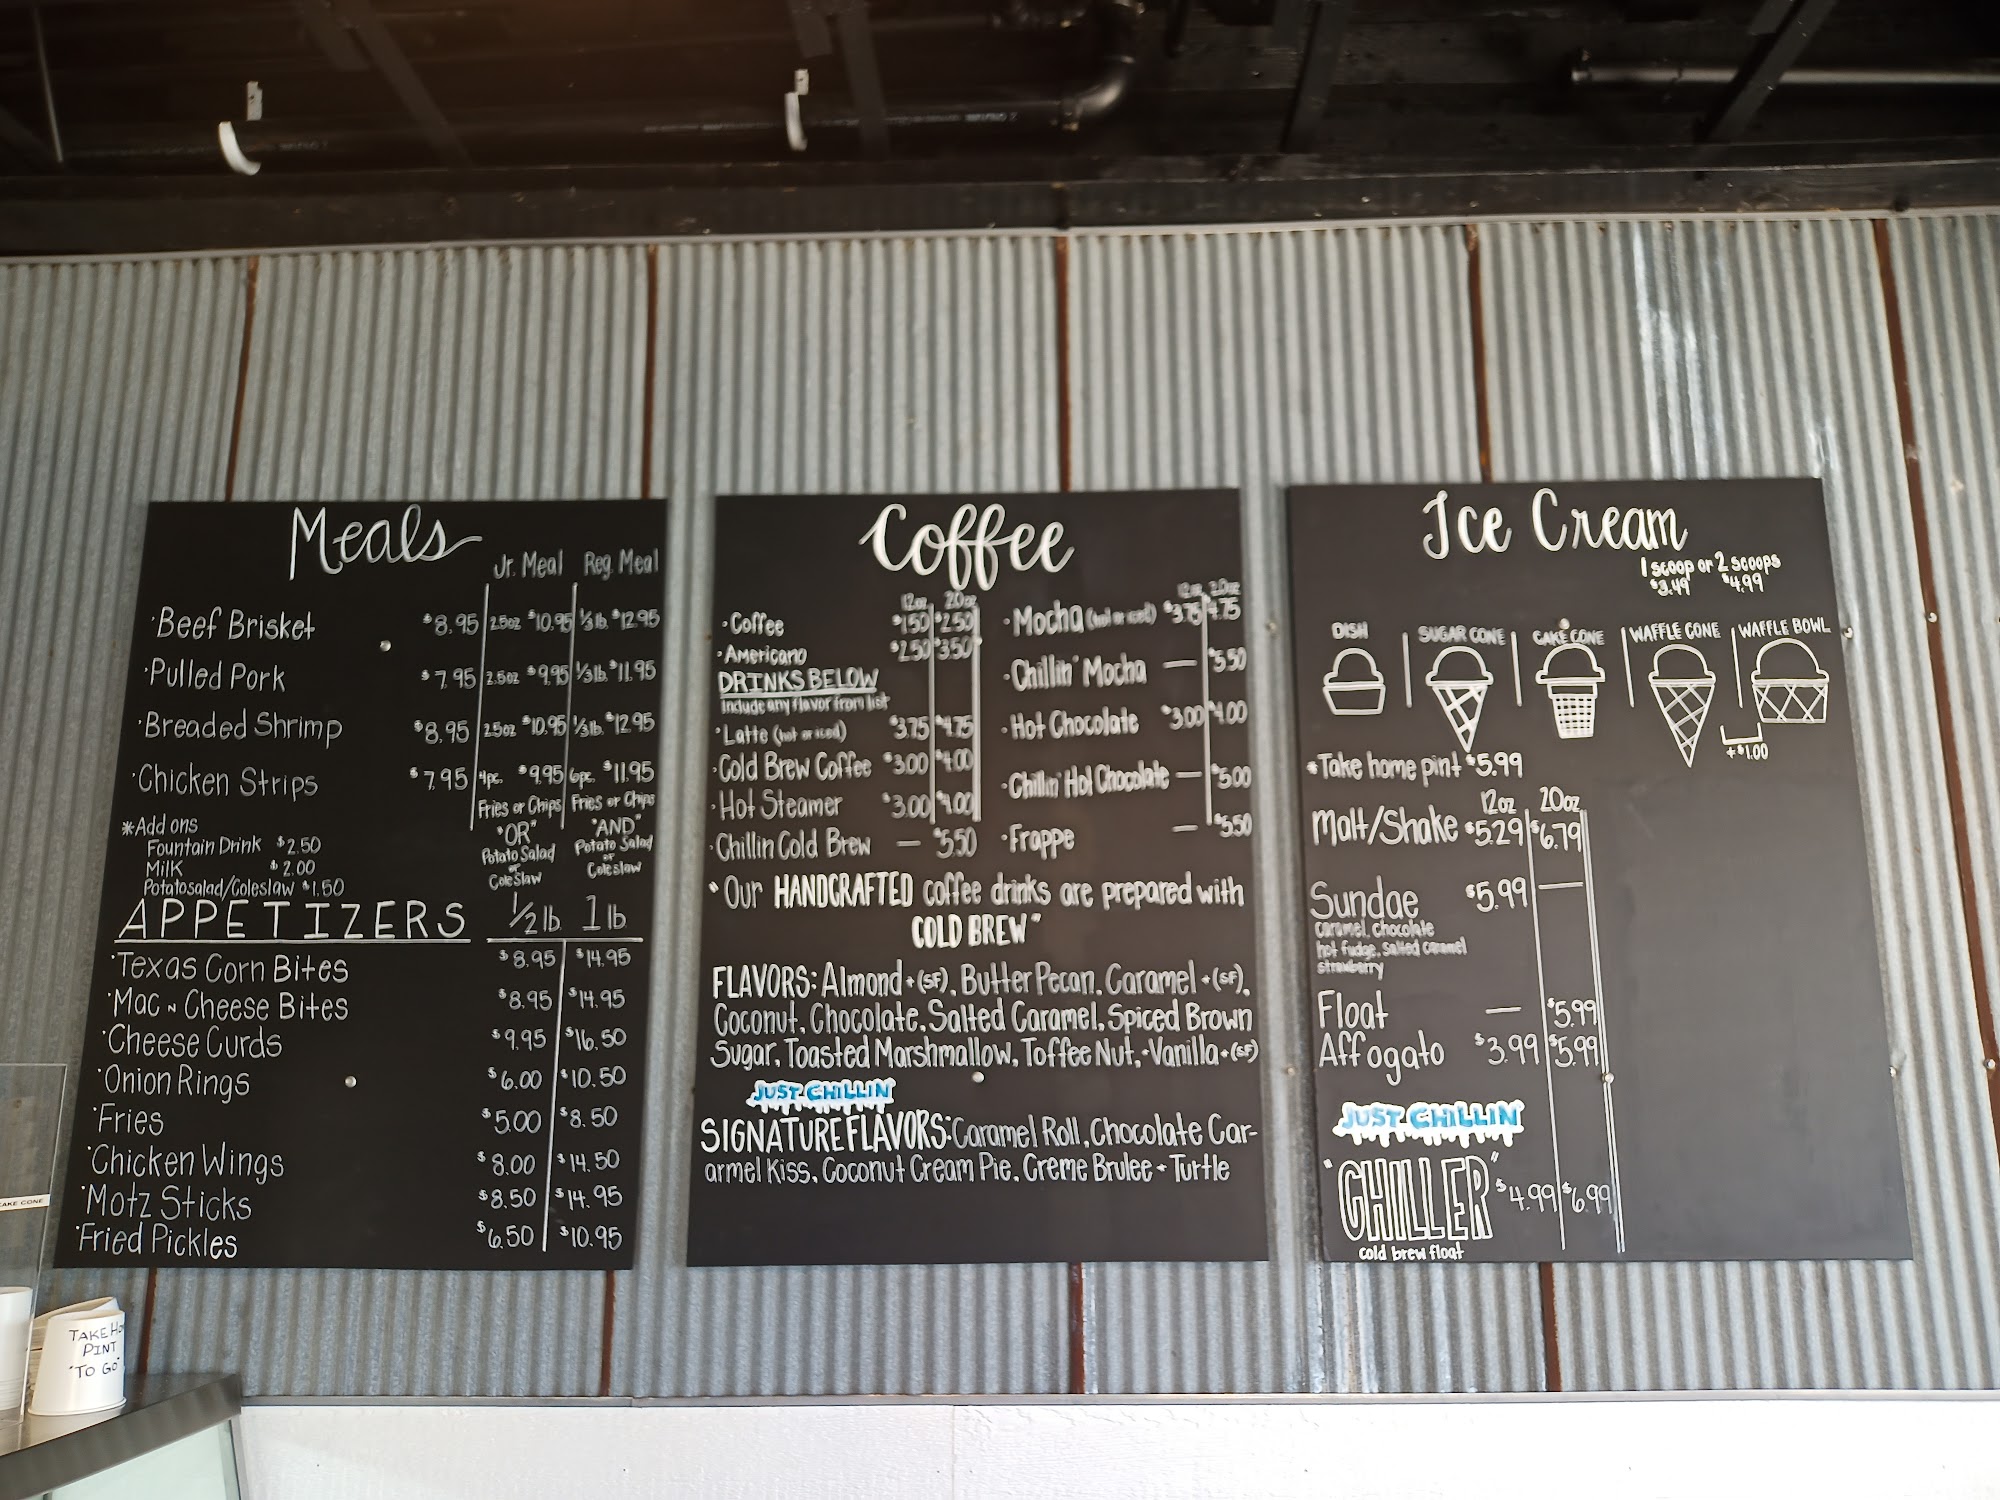 Meals
Jr. Meal Reg. Meal
·Beef Brisket $8.95 2.5oz $10.95 1/3 lb. $12.95
·Pulled Pork $7.95 2.5oz $9.95 1/3 lb. $11.95
·Breaded Shrimp $8.95 2.5oz $10.95 1/3 lb. $12.95
·Chicken Strips $7.95 4pc. $9.95 6pc. $11.95
Fries or Chips Fries or Chips
"OR" "AND"
Potato Salad Potato Salad
or or
Cole Slaw Coleslaw
*Add ons
Fountain Drink $2.50
Milk $2.00
Potatosalad/Coleslaw $1.50
APPETIZERS 1/2 lb. 1 lb
·Texas Corn Bites $8.95 $14.95
·Mac N Cheese Bites $8.95 $14.95
·Cheese Curds $9.95 $16.50
·Onion Rings $6.00 $10.50
·Fries $5.00 $8.50
·Chicken Wings $8.00 $14.50
·Motz Sticks $8.50 $14.95
·Fried Pickles $6.50 $10.95
Coffee
12oz 20oz
·Coffee $1.50 $2.50
·Americano $2.50 $3.50
DRINKS BELOW
include any flavor from list
·Latte (hot or iced) $3.75 $4.75
·Cold Brew Coffee $3.00 $4.00
·Hot Steamer $3.00 $4.00
·Chillin Cold Brew — $5.50
12oz 20oz
·Mocha (hot or iced) $3.75 $4.75
·Chillin' Mocha — $5.50
·Hot Chocolate $3.00 $4.00
·Chillin' Hot Chocolate — $5.00
·Frappe — $5.50
"Our HANDCRAFTED coffee drinks are prepared with
COLD BREW"
FLAVORS: Almond+(SF), Butter Pecan, Caramel+(SF),
Coconut, Chocolate, Salted Caramel, Spiced Brown
Sugar, Toasted Marshmallow, Toffee Nut,+Vanilla+(SF)
JUST CHILLIN'
SIGNATURE FLAVORS: Caramel Roll, Chocolate Car-
armel Kiss, Coconut Cream Pie, Creme Brulee + Turtle
Ice Cream
1 scoop or 2 scoops
$3.49 $4.99
DISH SUGAR CONE CAKE CONE WAFFLE CONE WAFFLE BOWL
+$1.00
*Take home pint $5.99
12oz 20oz
Malt/Shake $5.29 $6.79
Sundae $5.99 —
caramel, chocolate
hot fudge, salted caramel
strawberry
Float — $5.99
Affogato $3.99 $5.99
JUST CHILLIN'
"CHILLER" $4.99 $6.99
cold brew float
CAKE CONE
TAKE HO
PINT
"TO GO"